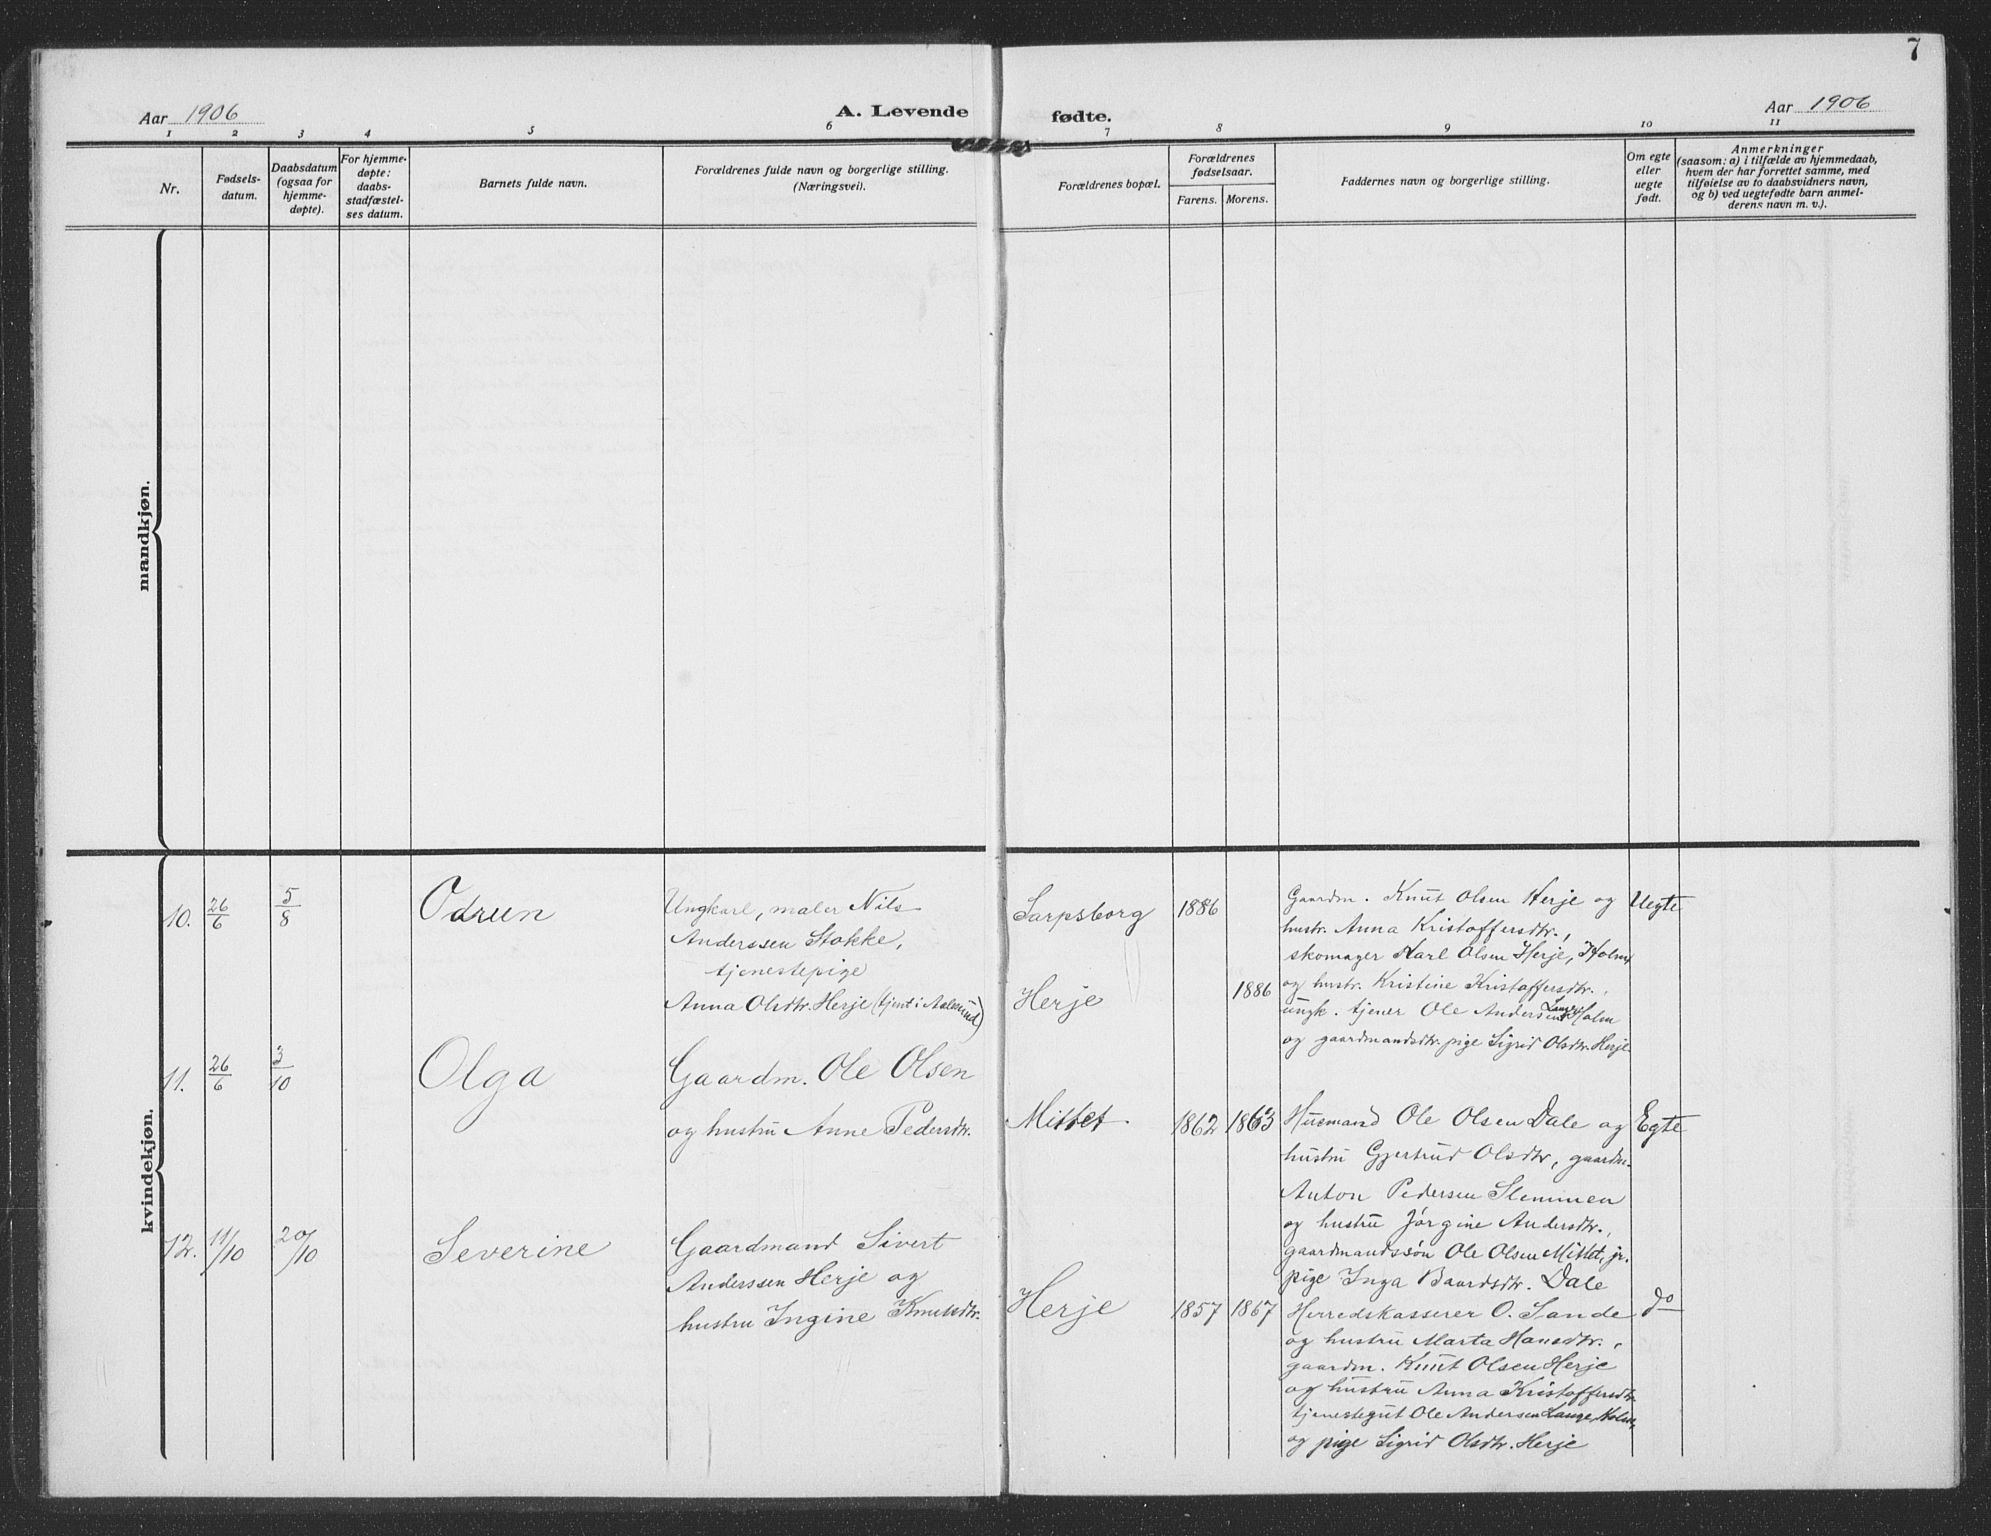 7
Aar 1906
A. Levende fødte.
Aar 1906
1 2 3 4 5 6 7 8 9 10 11
Nr.
Fødsels-
datum.
Daabsdatum
(ogsaa for
hjemme-
døpte).
For hjemme-
døpte:
daabs-
stadfæstel-
ses datum.
Barnets fulde navn.
Forældrenes fulde navn og borgerlige stilling.
(Næringsvei).
Forældrenes bopæl.
Forældrenes
fødselsaar.
Farens. Morens.
Faddernes navn og borgerlige stilling.
Om egte
eller
uegte
født.
Anmerkninger
(saasom: a) i tilfælde av hjemmedaab,
hvem der har forrettet samme, med
tilføielse av to daabsvidners navn,
og b) ved uegtefødte barn anmel-
derens navn m. v.).
mandkjøn.
kvindekjøn.
10. 26/6 5/8 Odrun
Ungkarl, maler Nils
Anderssen Stokke,
tjenestepige
Anna Olsdtr. Herje (tjent i Aalesund)
Sarpsborg 1886
Herje 1886
Gaardm. Knut Olsen Herje og
hustr. Anna Kristoffersdtr.,
skomager Karl Olsen Herje, Holm
og hustr. Kristine Kristoffersdtr.,
ungk. tjener Ole Andersen Lange Holm
og gaardmandsdtr. pige Sigrid Olsdtr. Herje
Uegte
11. 26/6 3/10 Olga
Gaardm. Ole Olsen
og hustru Anne Pedersdtr.
Mittet 1862 1863
Husmand Ole Olsen Dale og
hustru Gjertrud Olsdtr, gaardm.
Anton Pedersen Slemmen
og hustru Jørgine Andersdtr.,
gaardmandssøn Ole Olsen Mittet, jr.
pige Inga Baardsdtr. Dale
Egte
12. 11/10 20/10 Severine
Gaardmand Sivert
Anderssen Herje og
hustru Ingine Knutsdtr.
Herje 1857 1867
Herredskasserer O. Sande
og hustru Marta Hansdtr.,
gaardm. Knut Olsen Herje
og hustru Anna Kristoffersdtr.
tjenestegut Ole Andersen Lange, Holm,
og pige Sigrid Olsdtr. Herje
do